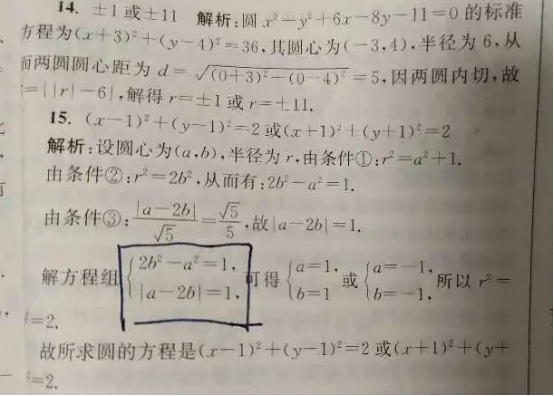 14. ±1或±11 解析:圆x²-y²+6x-8y-11=0的标准
方程为(x+3)²+(y-4)²=36,其圆心为(-3,4),半径为6,从
而两圆圆心距为d=√(0+3)²-(0-4)²=5,因两圆内切,故
=||r|-6|,解得r=±1或r=±11.
15. (x-1)²+(y-1)²=2或(x+1)²+(y+1)²=2
解析:设圆心为(a,b),半径为r,由条件①:r²=a²+1.
由条件②:r²=2b²,从而有:2b²-a²=1.
由条件③:|a-2b|/√5=√5/5,故|a-2b|=1.
解方程组{2b²-a²=1, |a-2b|=1,可得{a=1, b=1或{a=-1, b=-1.所以r²=
=2.
故所求圆的方程是(x-1)²+(y-1)²=2或(x+1)²+(y+
=2.